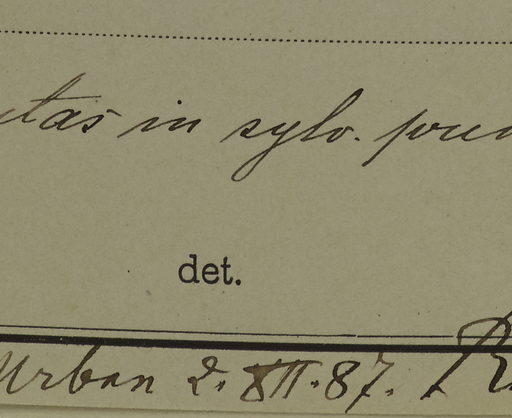 in sylv.
det.
Urban 2. XII. 87.